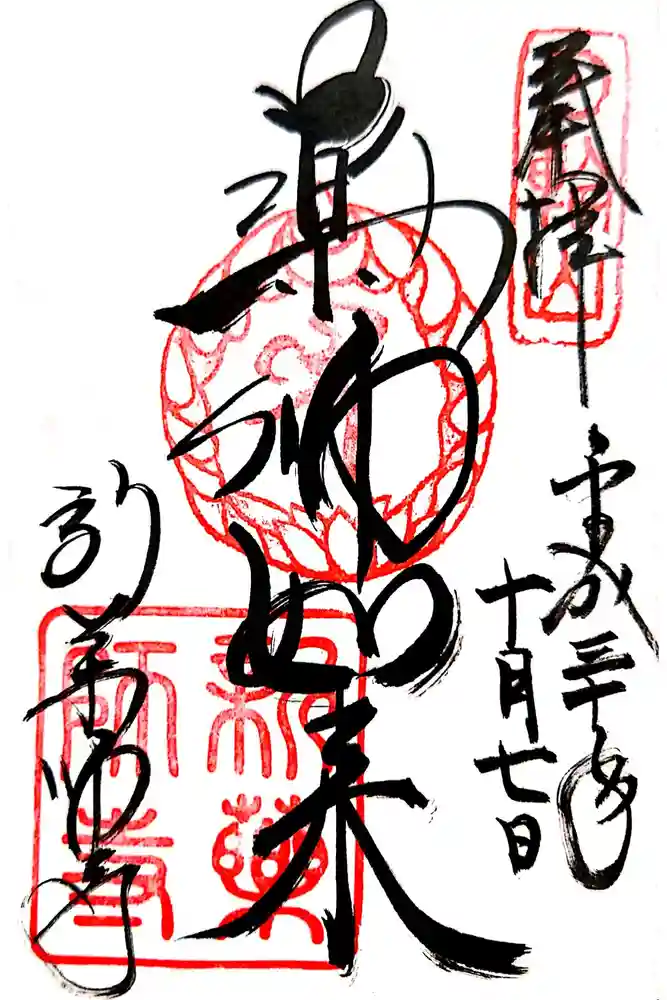 奉拝
平成三十年
十月七日
薬師如来
新薬師寺
新薬
師寺